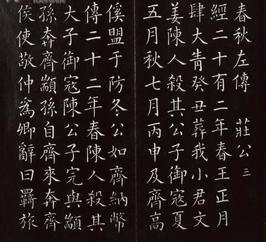 春秋左傳 莊公三
經二十有二年春王正月
肆大眚癸丑葬我小君文
姜陳人殺其公子御寇夏
五月秋七月丙申及齊高
傒盟于防冬公如齊納幣
傳二十二年春陳人殺其
大子御寇陳公子完與顓
孫奔齊顓孫自齊來奔齊
侯使敬仲爲卿辭曰羈旅